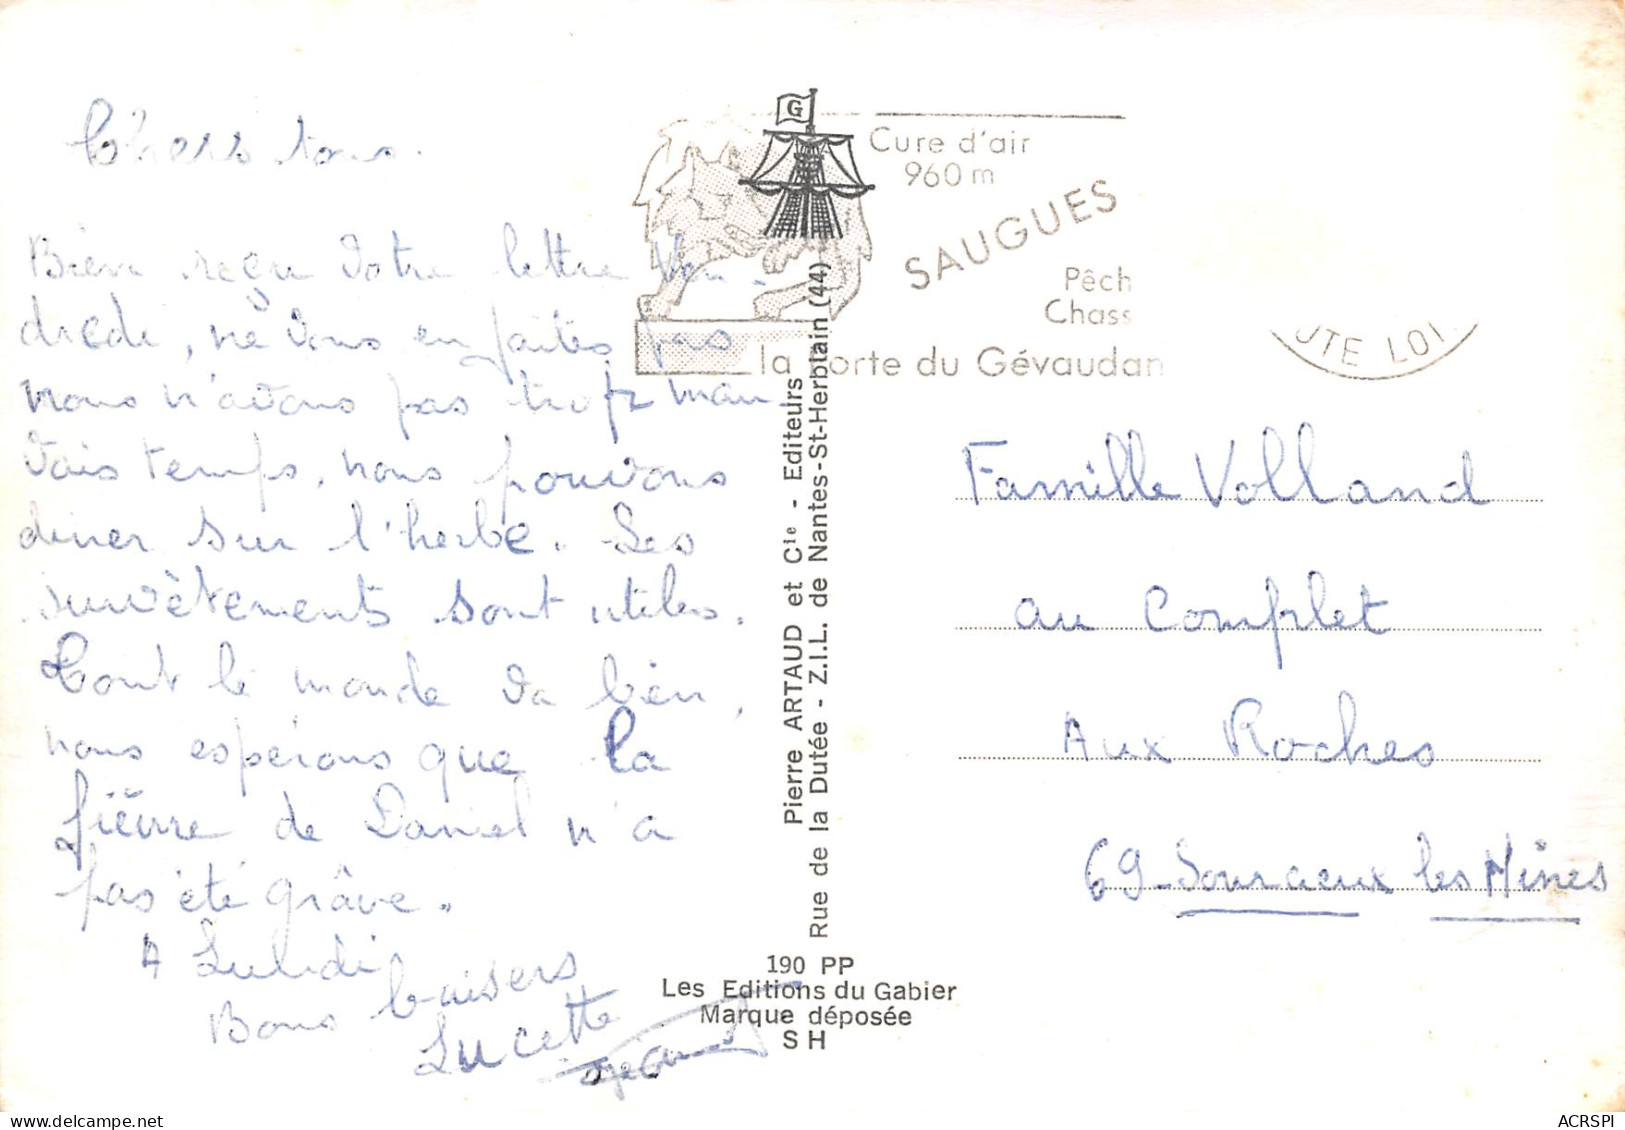 Chers tous.
Bien reçu votre lettre Ven-
dredi, ne vous en faites pas
nous n'avons pas trop mau-
vais temps, nous pouvons
diner sur l'herbe. Les
survêtements sont utiles.
Tout le monde va bien,
nous espérons que la
fièvre de Daniel n'a
pas été grâve.
A Lundi
Bons baisers
Lucette
G
Cure d'air
960 m
SAUGUES
Pêch
Chass
la Porte du Gévaudan
UTE LOI
Pierre ARTAUD et Cie - Editeurs
Rue de la Dutée - Z.I.L. de Nantes-St-Herblain (44)
190 PP
Les Editions du Gabier
Marque déposée
S H
Famille Volland
au Complet
Aux Roches
69 - Sourcieux les Mines
ACRSPI